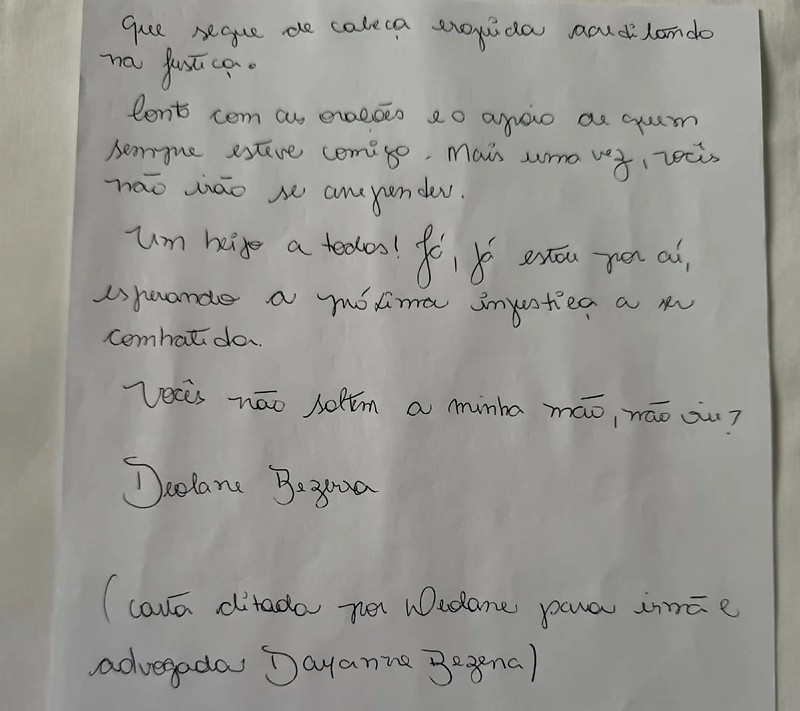 que segue de cabeça erguida acreditando
na justiça.
Conto com as orações e o apoio de quem
sempre esteve comigo. Mais uma vez, vocês
não irão se arrepender.
Um beijo a todos! Já, já estou por aí,
esperando a próxima injustiça a ser
combatida.
Vocês não soltem a minha mão, não viu?
Deolane Bezerra
(carta ditada por Deolane para irmã e
advogada Dayanne Bezerra)